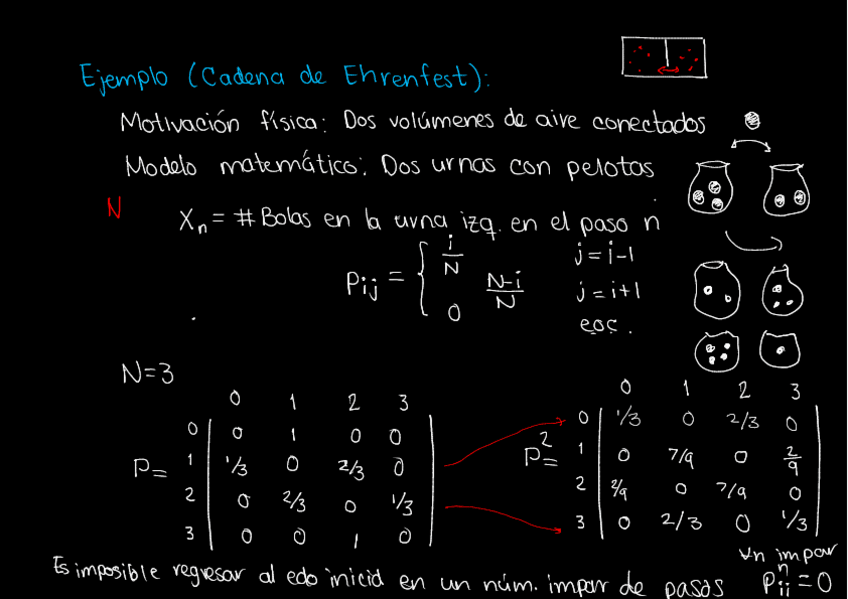 Ejemplo (Cadena de Ehrenfest):
Motivación física: Dos volúmenes de aire conectados
Modelo matemático: Dos urnas con pelotas
N
Xn = # Bolas en la urna izq. en el paso n
Pij = { i/N   j = i-1
(N-i)/N   j = i+1
0   eoc.
N=3
0 1 2 3
P=
0 | 0 1 0 0 |
1 | 1/3 0 2/3 0 |
2 | 0 2/3 0 1/3 |
3 | 0 0 1 0 |
0 1 2 3
P²=
0 | 1/3 0 2/3 0 |
1 | 0 7/9 0 2/9 |
2 | 2/9 0 7/9 0 |
3 | 0 2/3 0 1/3 |
Es imposible regresar al edo inicial en un núm. impar de pasos
∀n impar
Pⁿii = 0